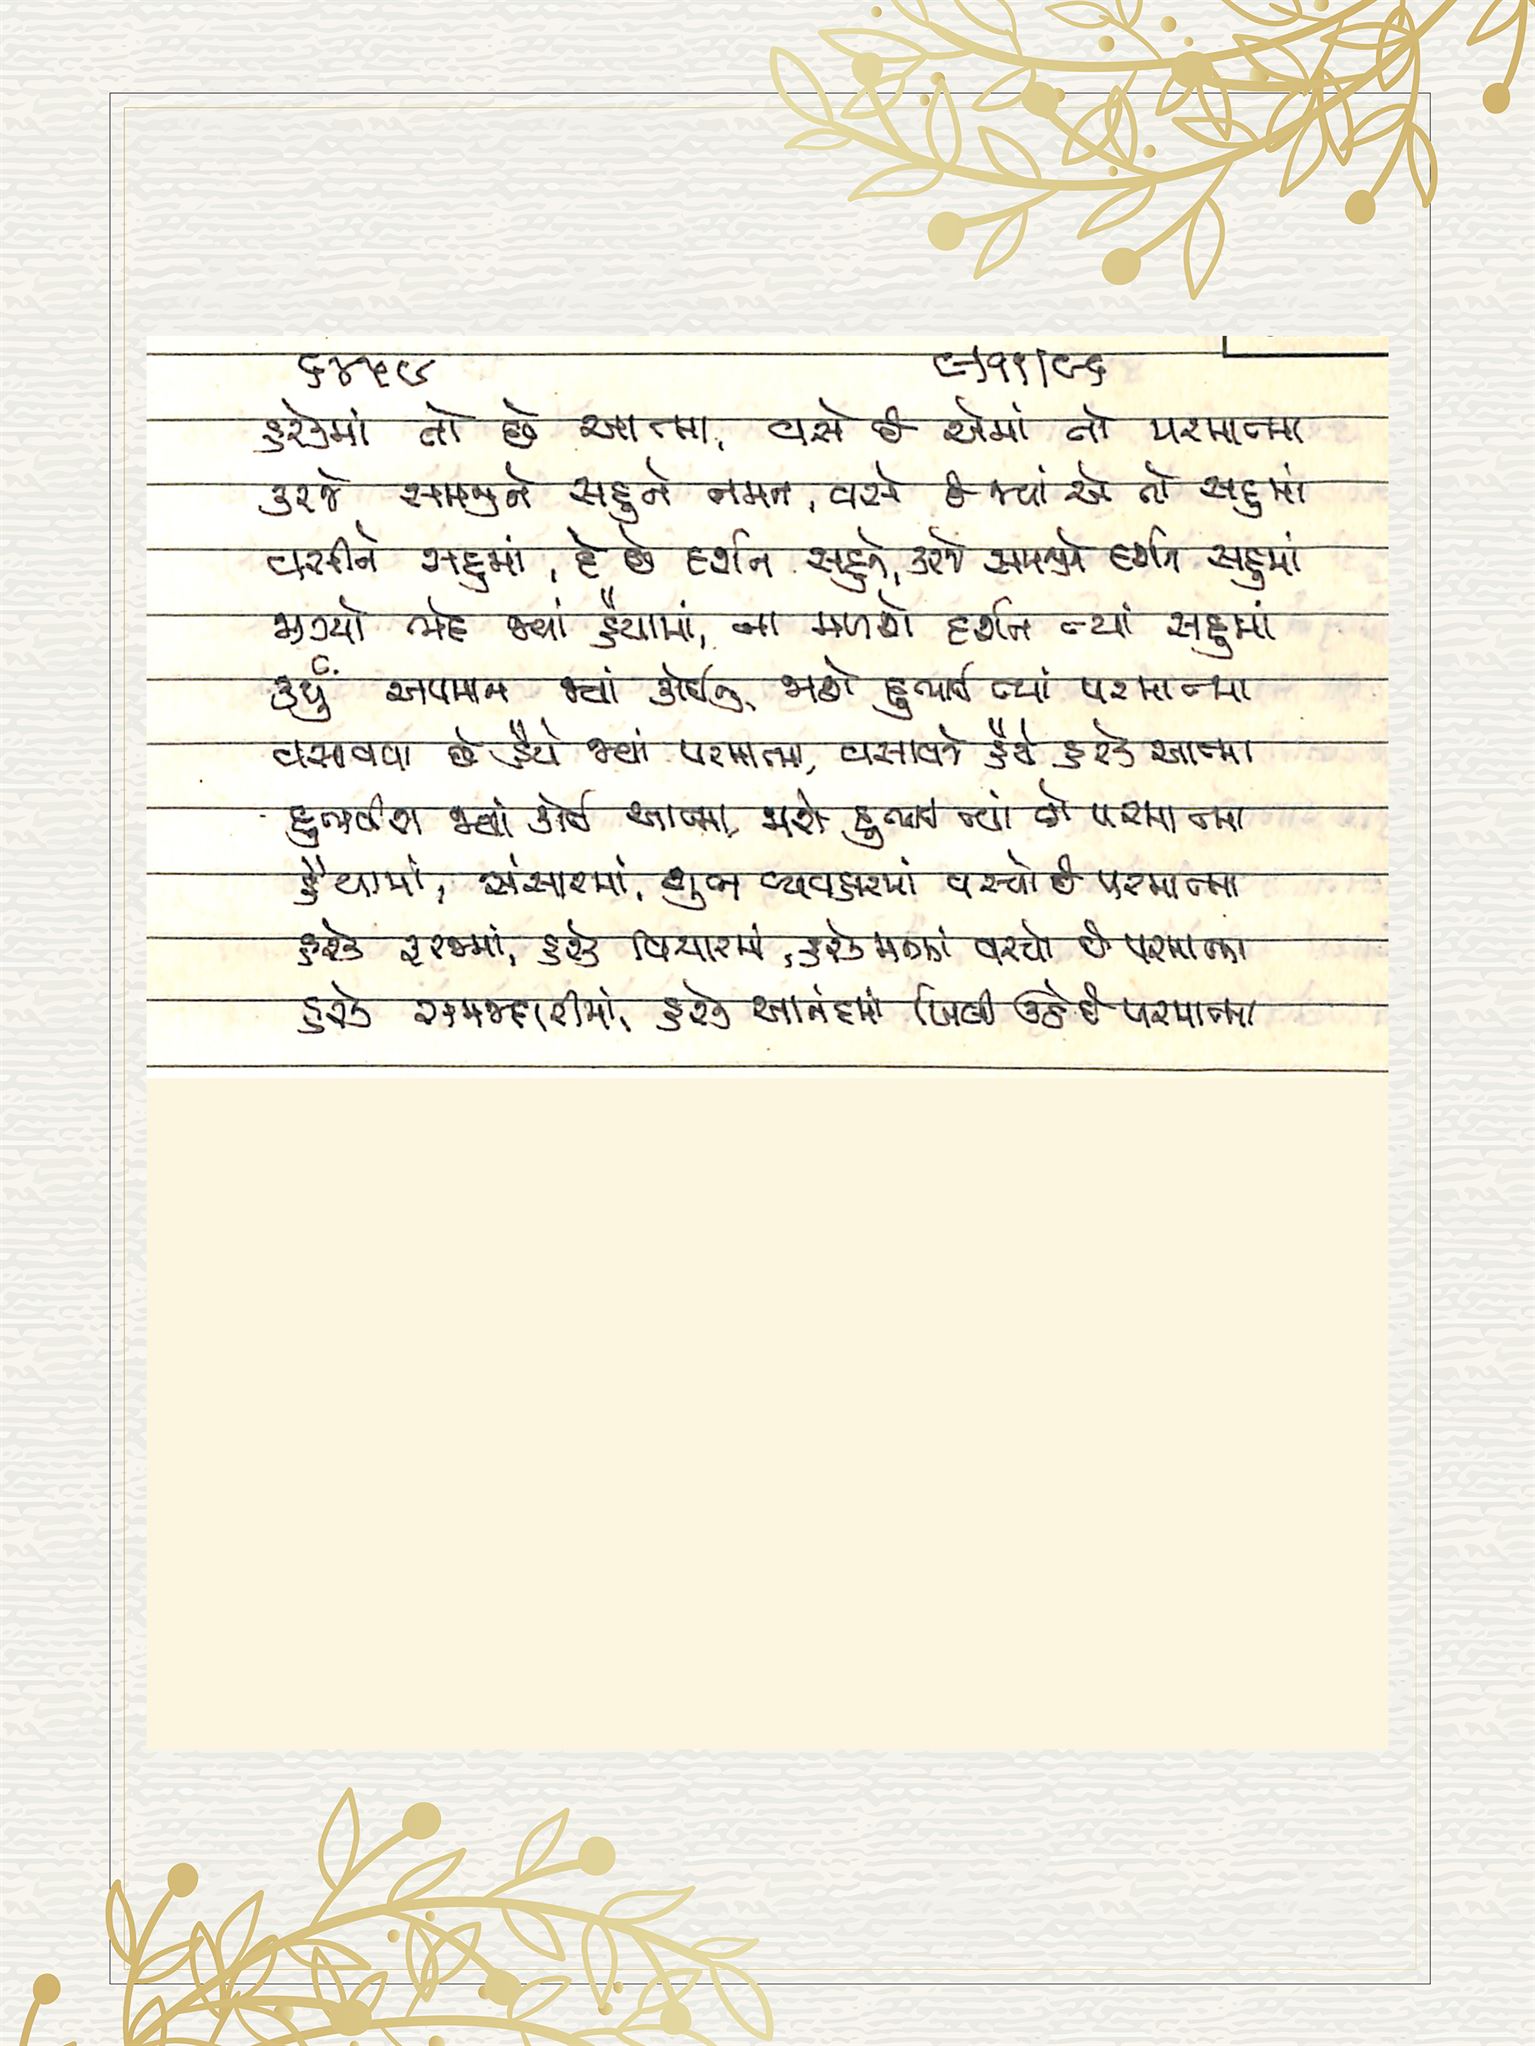 ૬૪૫૯ ૯/૧૧/૯૬
હરેકમાં તો છે આત્મા, વસે છે એમાં તો પરમાત્મા
કરજે સમજીને સહુને નમન, વસે છે જ્યાં એ તો સહુમાં
વસીને સહુમાં, દે છે દર્શન સહુને, કરજે સમજીને દર્શન સહુમાં
ભળ્યો ભેદ જ્યાં હૈયામાં, ના મળશે દર્શન ત્યાં સહુમાં
કર્યું અપમાન જ્યાં કોઈનું, જાશે દુભાઈ ત્યાં પરમાત્મા
વસાવવા છે હૈયે જ્યાં પરમાત્મા, વસાવજે હૈયે હરેક આત્મા
દુભવીશ જ્યાં કોઈ આત્મા, જાશે દુભાઈ ત્યાં તો પરમાત્મા
હૈયામાં, સંસારમાં, શુભ વ્યવહારમાં વસ્યો છે પરમાત્મા
હરેક ફરજમાં, હરેક વિચારમાં, હરેક મનમાં વસ્યો છે પરમાત્મા
હરેક સમજદારીમાં, હરેક આનંદમાં ખિલી ઊઠે છે પરમાત્મા